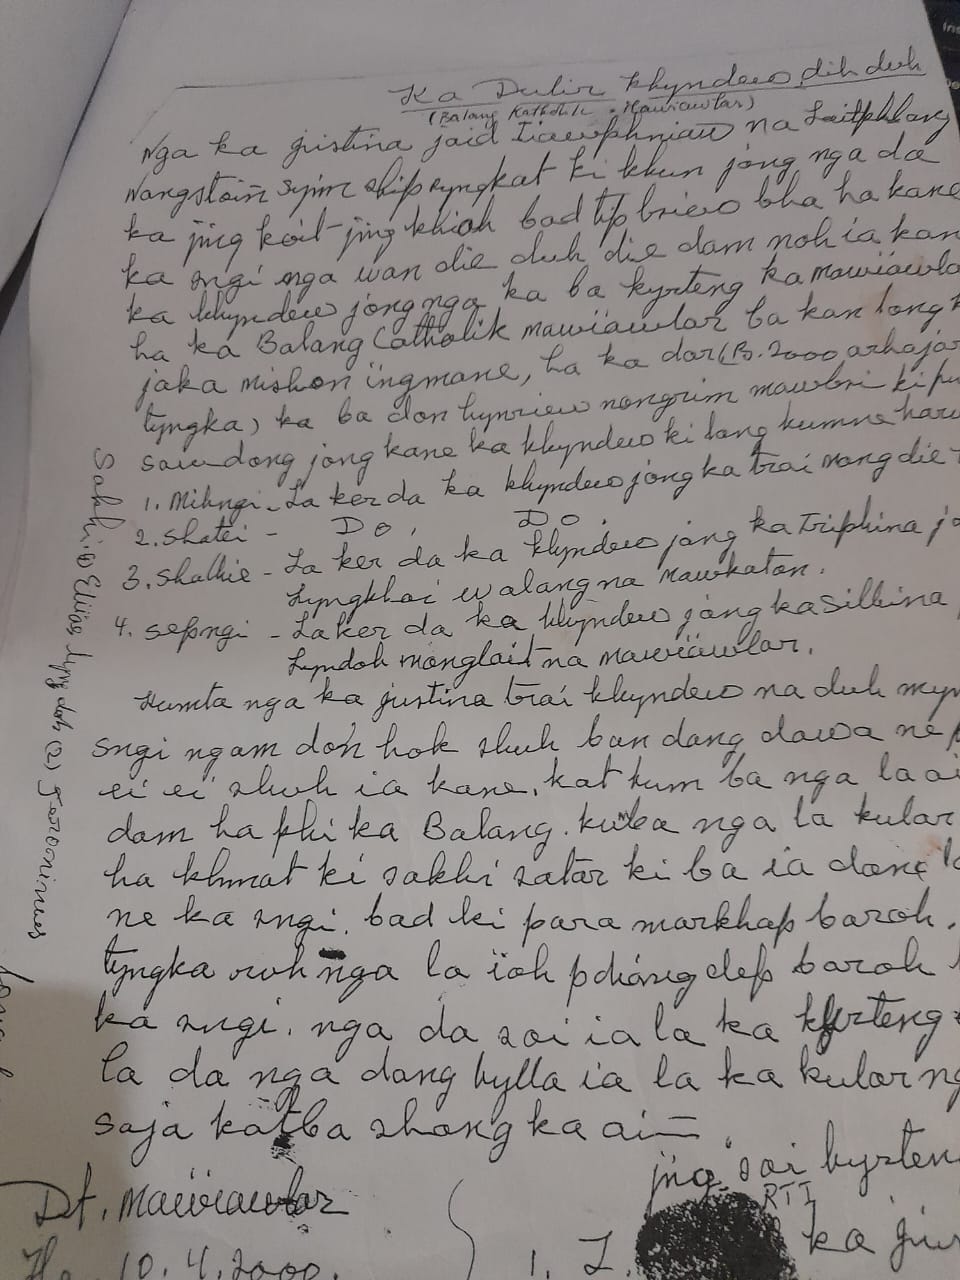 Ka Dulir khyndew dih duh
(Balang Katholik . Mawiawlar)
Nga ka justina jaid Iawphniaw na Laitphlang
nongstoin syim ship ryngkat ki khun jong nga da
ka jing koit-jing khiah bad tip briew bha ha kane
ka sngi nga wan die duh die dam noh ia kan
ka khyndew jong nga ka ba kyrteng ka mawiawla
ha ka Balang Catholik mawiawlar ba kan long k
jaka mishon ingmane, ha ka dor (Rs.2000 arhajar
tyngka) ka ba don hynriew nongrim mawbri ki pu
sawdong jong kane ka khyndew ki long kumne haru
1. Mihngi - La ker da ka khyndew jong ka trai nongdie -
2. Shatei - Do, Do,
3. Shathie - La ker da ka khyndew jong ka Triphina ja
Lyngkhoi walang na mawkaton.
4. sepngi - La ker da ka khyndew jong ka Silbina
Lyndoh nonglait na mawiawlar.
Kumta nga ka justina trai khyndew na duh myn
sngi ngam don hok shuh ban dang dawa ne
ei ei shuh ia kane, kat kum ba nga la ai
dam ha phi ka Balang. kumba nga la kular
ha khmat ki sakhi satar ki ba ia dong
ne ka sngi. bad ki para markhap baroh.
tyngka ruh nga la ioh pdiang dep baroh
ka sngi. nga da soi ia la ka kyrteng
la da nga dang bylla ia la ka kular ng
saja katba shong ka ain.
jng soi kyrten
RTI
Dt. Mawiawlar
10.4.2000.
1. L. ka jus
Sakhi. (1) Elias lyngdoh (2) Feroonimus